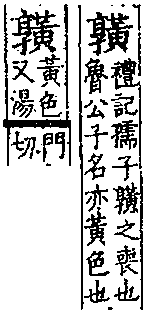 䵍
禮記孺子䵍之喪也
魯公子名亦黃色也
䵍
黃色
又湯
門
切